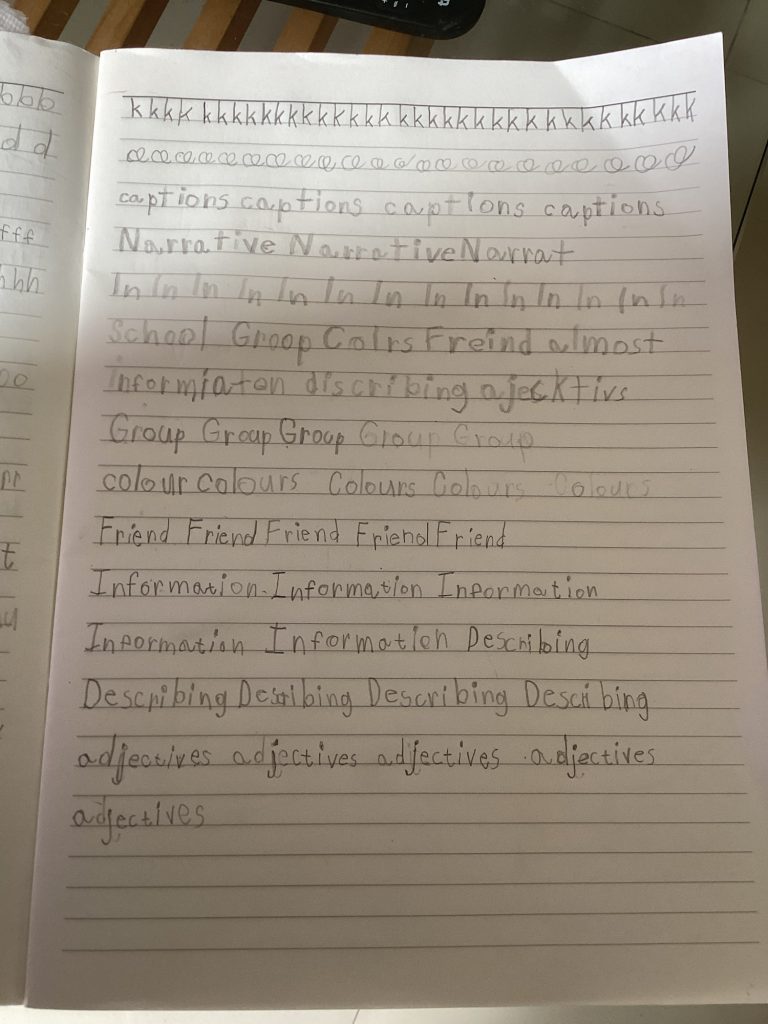 bbb
d d
fff
hhh
oo
t
y
kkkk kkkkkkkkkkkkk kkkkkkkkkkkkkkkkk
captions captions captions captions
Narrative NarrativeNarrat
In In In In In In In In In In In In In In
School Groop Colrs Freind almost
informiaton discribing ajecktivs
Group Group Group Group Group
colour colours Colours Colours Colours
Friend Friend Friend Friend Friend
Information. Information Information
Information Information Describing
Describing Desribing Describing Describing
adjectives adjectives adjectives adjectives
adjectives